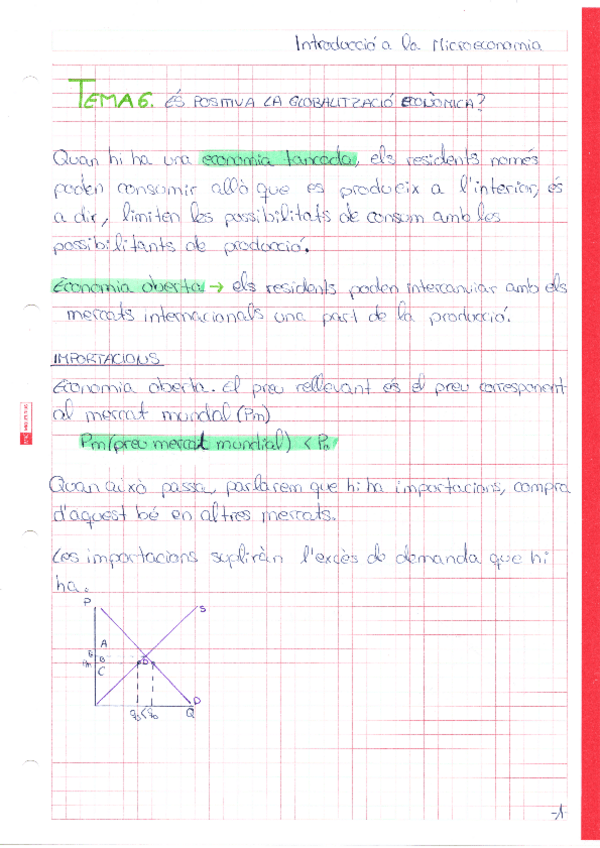 Introducció a la Microeconomia
TEMA 6. ÉS POSITIVA LA GLOBALITZACIÓ ECONÒMICA?
Quan hi ha una economia tancada, els residents només
poden consumir allò que es produeix a l'interior, és
a dir, limiten les possibilitats de consum amb les
possibilitants de producció.
Economia oberta → els residents poden intercanviar amb els
mercats internacionals una part de la producció.
IMPORTACIONS
Economia oberta. El preu rellevant és el preu corresponent
al mercat mundal (Pm)
Pm (preu mercat mundial) < Pa
Quan això passa, parlarem que hi ha importacions, compra
d'aquest bé en altres mercats.
Les importacions supliràn l'excès de demanda que hi
ha.
P
S
A
B
Pm
C
D
Q
-1